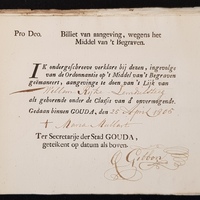 Pro Deo. Billiet van aangeving, wegens het
Middel van 't Begraven.
IK ondergeschreeve verklare bij dezen, ingevolge
van de Ordonnantie op 't Middel van 't Begraven
geëmaneert, aangevinge te doen van 't Lijk van
Willem
als gehorende onder de Classis van d'onvermogende.
Gedaan binnen GOUDA, den 25 April 1806
Maria
Ter Secretarije der Stad GOUDA,
geteikent op datum als boven.